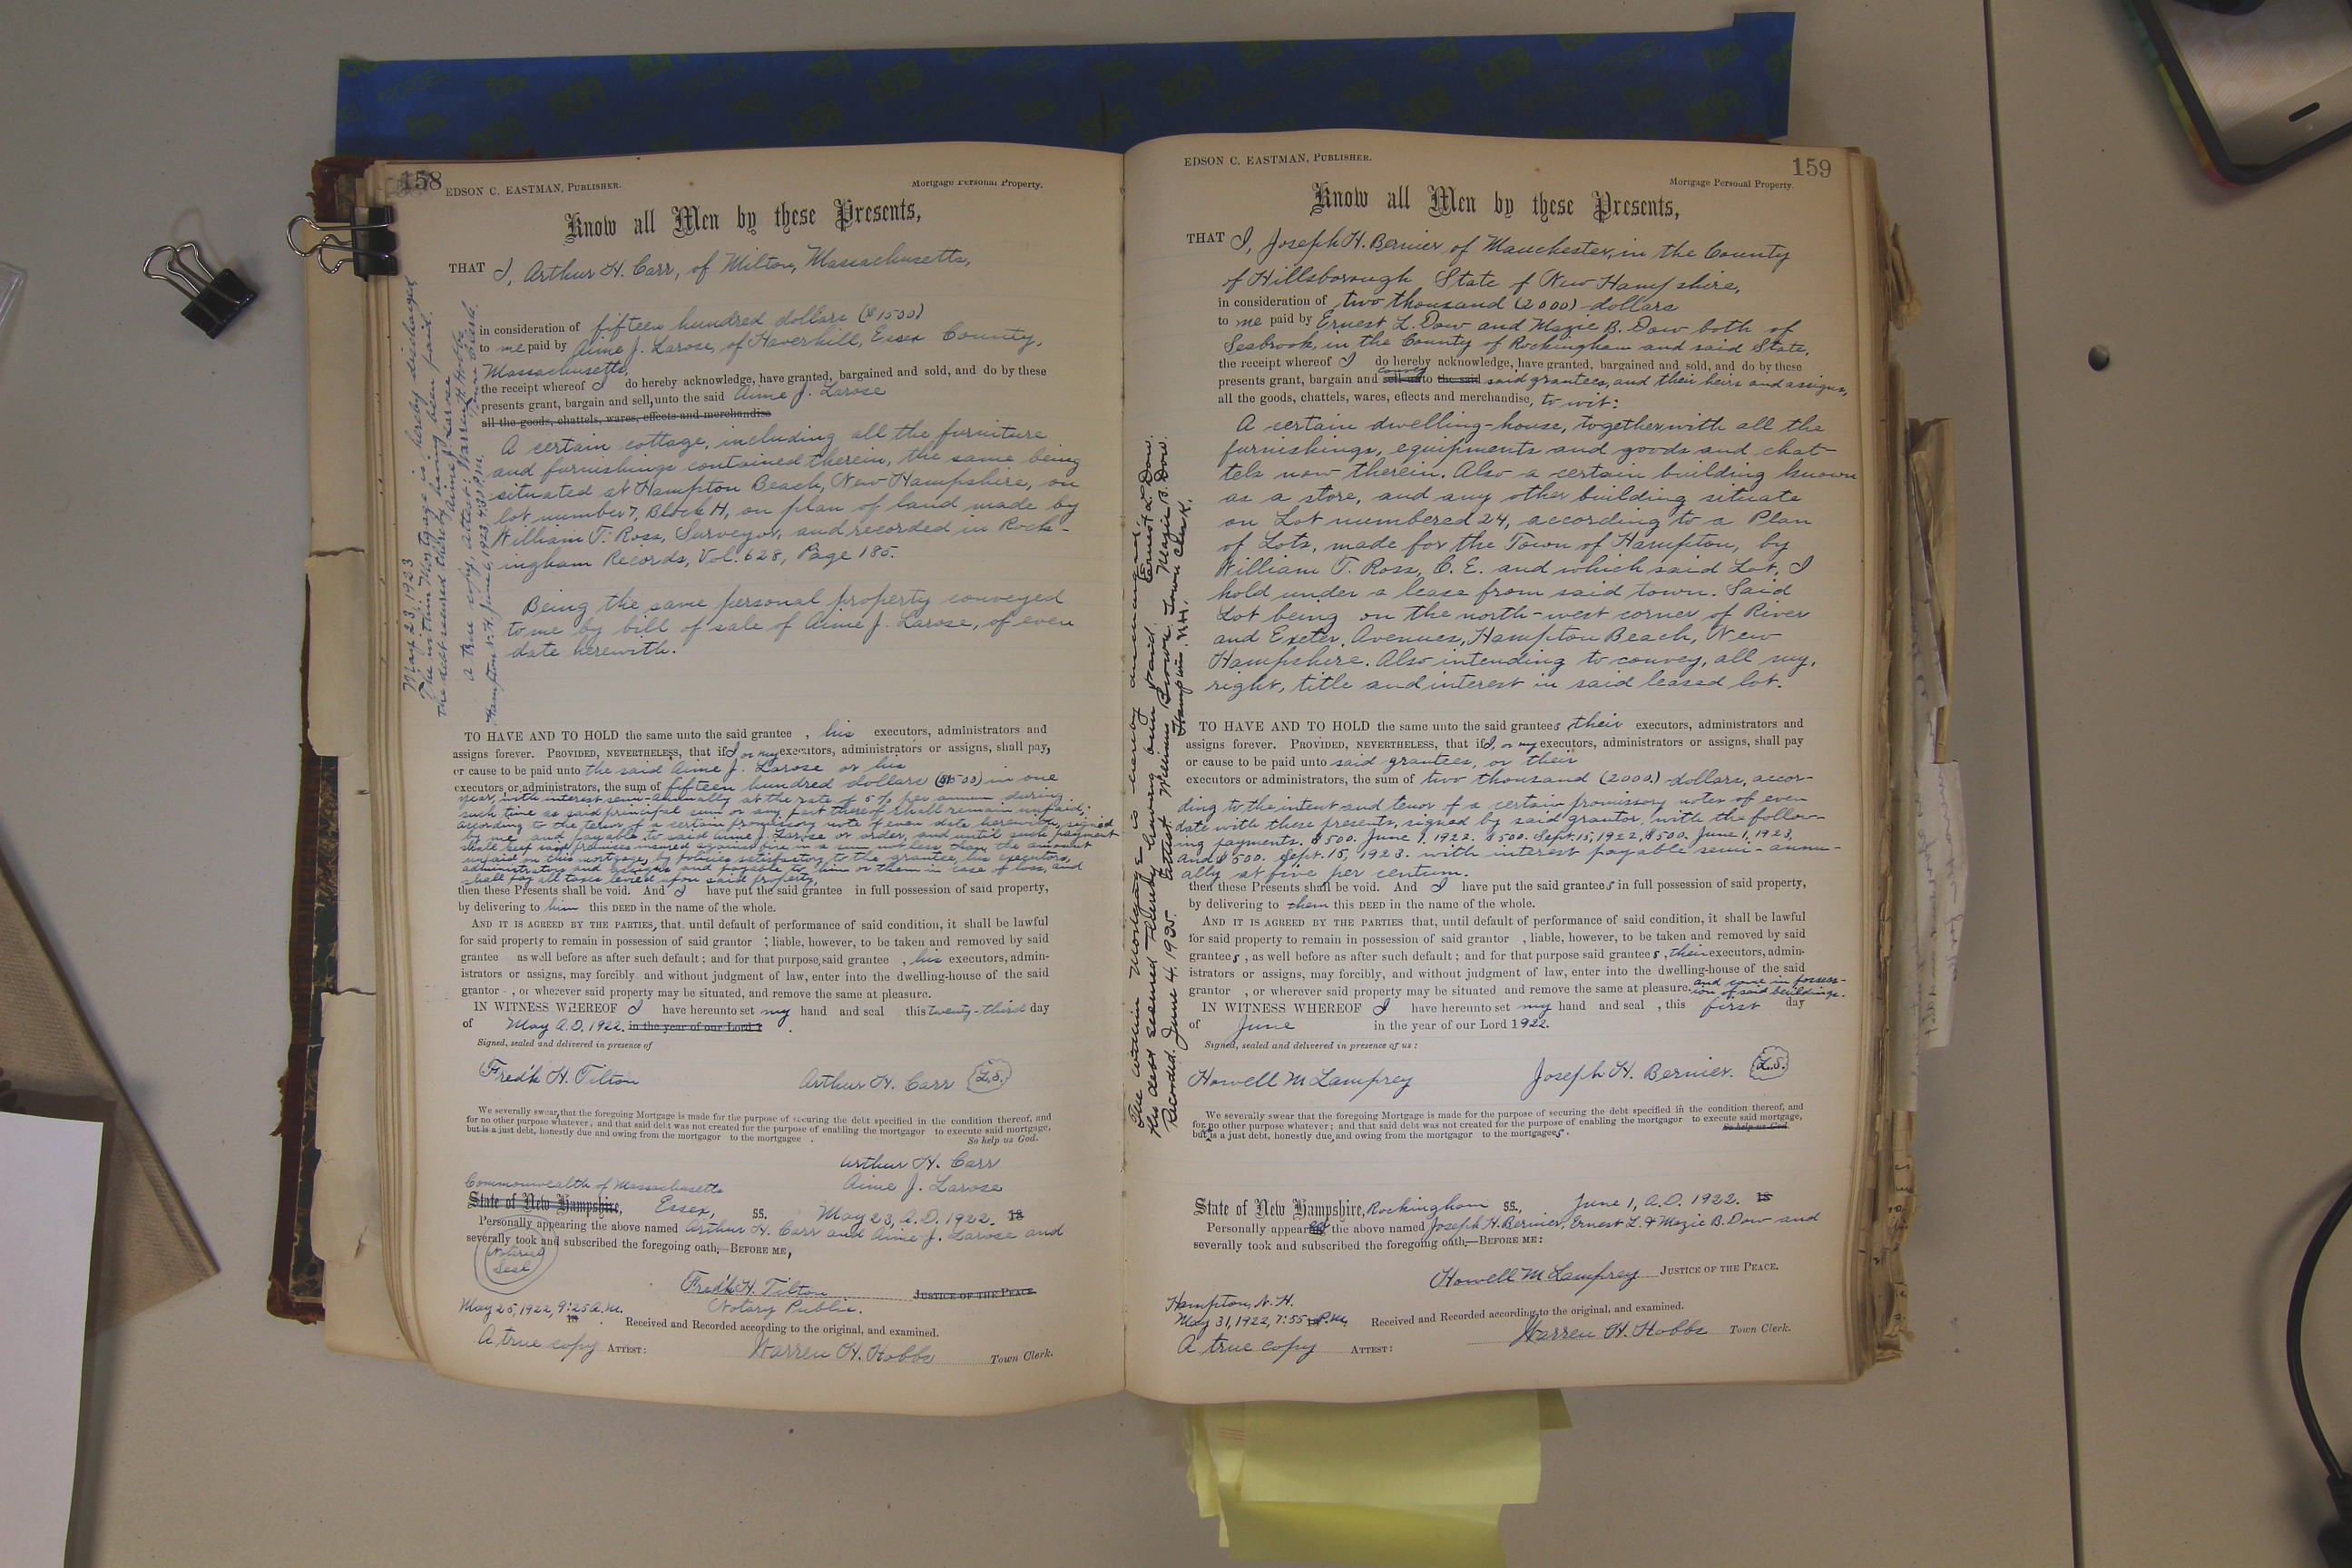 158
EDSON C. EASTMAN, PUBLISHER.
Mortgage Personal Property.
Know all Men by these Presents,
THAT I, Arthur H. Carr, of Milton, Massachusetts,
in consideration of fifteen hundred dollars ($1500)
to me paid by Aime J. Larose, of Haverhill, Essex County,
Massachusetts,
the receipt whereof I do hereby acknowledge, have granted, bargained and sold, and do by these
presents grant, bargain and sell, unto the said Aime J. Larose
all the goods, chattels, wares, effects and merchandise
A certain cottage, including all the furniture
and furnishings contained therein, the same being
situated at Hampton Beach, New Hampshire, on
lot number 7, Block H, on plan of land made by
William T. Ross, Surveyor, and recorded in Rock-
ingham Records, Vol. 628, Page 185.
Being the same personal property conveyed
to me by bill of sale of Aime J. Larose, of even
date herewith.
TO HAVE AND TO HOLD the same unto the said grantee , his executors, administrators and
assigns forever. PROVIDED, NEVERTHELESS, that if I or my executors, administrators or assigns, shall pay,
or cause to be paid unto the said Aime J. Larose or his
executors or administrators, the sum of fifteen hundred dollars ($1500) in one
year, with interest semi-annually at the rate of 6 % per annum during
such time as said principal sum or any part thereof shall remain unpaid;
according to the tenor of a certain promissory note of even date herewith, signed
by me and payable to said Aime J. Larose or order, and until such payment
shall keep said premises insured against fire in a sum not less than the amount
unpaid on this mortgage, by policies satisfactory to the grantee, his executors,
administrators and assigns and payable to him or them in case of loss, and
shall pay all taxes levied upon said property,
then these Presents shall be void. And I have put the said grantee in full possession of said property,
by delivering to him this DEED in the name of the whole.
AND IT IS AGREED BY THE PARTIES, that, until default of performance of said condition, it shall be lawful
for said property to remain in possession of said grantor ; liable, however, to be taken and removed by said
grantee as well before as after such default ; and for that purpose, said grantee , his executors, admin-
istrators or assigns, may forcibly and without judgment of law, enter into the dwelling-house of the said
grantor , or wherever said property may be situated, and remove the same at pleasure.
IN WITNESS WHEREOF I have hereunto set my hand and seal this twenty-third day
of May A.D. 1922. in the year of our Lord 1
Signed, sealed and delivered in presence of
Fredk H. Tilton Arthur H. Carr (L.S.)
We severally swear, that the foregoing Mortgage is made for the purpose of securing the debt specified in the condition thereof, and
for no other purpose whatever ; and that said debt was not created for the purpose of enabling the mortgagor to execute said mortgage,
but is a just debt, honestly due and owing from the mortgagor to the mortgagee . So help us God.
Arthur H. Carr
Aime J. Larose
Commonwealth of Massachusetts
State of New Hampshire, Essex, SS. May 23, A.D. 1922. 18
Personally appearing the above named Arthur H. Carr and Aime J. Larose and
severally took and subscribed the foregoing oath,—BEFORE ME,
(Notarial
Seal)
Fredk H. Tilton JUSTICE OF THE PEACE.
Notary Public.
May 25, 1922, 9:25 A.M. 18 Received and Recorded according to the original, and examined.
A true copy ATTEST: Warren H. Hobbs Town Clerk.
May 23, 1923
The within Mortgage is hereby discharged
the debt secured thereby having been paid.
Aime J. Larose
a true copy, attest: Warren H. Hobbs
Town Clerk.
Hampton N.H. June 6, 1923, 4:30 P.M.
159
EDSON C. EASTMAN, PUBLISHER.
Mortgage Personal Property.
Know all Men by these Presents,
THAT I, Joseph H. Bernier of Manchester, in the County
of Hillsborough State of New Hampshire,
in consideration of two thousand (2000) dollars
to me paid by Ernest L. Dow and Mazie B. Dow both of
Seabrook, in the County of Rockingham and said State,
the receipt whereof I do hereby acknowledge, have granted, bargained and sold, and do by these
presents grant, bargain and convey sell unto the said said grantees, and their heirs and assigns,
all the goods, chattels, wares, effects and merchandise, to wit:
A certain dwelling-house, together with all the
furnishings, equipments and goods and chat-
tels now therein. Also a certain building known
as a store, and any other building situate
on Lot numbered 24, according to a Plan
of Lots, made for the Town of Hampton, by
William T. Ross, C. E. and which said Lot, I
hold under a lease from said town. Said
Lot being on the north-west corner of River
and Exeter Avenues, Hampton Beach, New
Hampshire. Also intending to convey, all my,
right, title and interest in said leased lot.
TO HAVE AND TO HOLD the same unto the said grantees their executors, administrators and
assigns forever. PROVIDED, NEVERTHELESS, that if I, or my executors, administrators or assigns, shall pay
or cause to be paid unto said grantees, or their
executors or administrators, the sum of two thousand (2000.) dollars, accor-
ding to the intent and tenor of a certain promissory notes of even
date with these presents, signed by said grantor, with the follow-
ing payments. $500. June 1, 1922. $500. Sept. 15, 1922, $500. June 1, 1923,
and $500. Sept. 15, 1923. with interest payable semi-annu-
ally at five per centum.
then these Presents shall be void. And I have put the said grantees in full possession of said property,
by delivering to them this DEED in the name of the whole.
AND IT IS AGREED BY THE PARTIES that, until default of performance of said condition, it shall be lawful
for said property to remain in possession of said grantor , liable, however, to be taken and removed by said
grantees, as well before as after such default ; and for that purpose said grantees, their executors, admin-
istrators or assigns, may forcibly, and without judgment of law, enter into the dwelling-house of the said
grantor , or wherever said property may be situated and remove the same at pleasure. and come in possess-
ion of said buildings.
IN WITNESS WHEREOF I have hereunto set my hand and seal , this first day
of June in the year of our Lord 1922.
Signed, sealed and delivered in presence of us :
Howell M Lamprey Joseph H. Bernier. (L.S.)
We severally swear that the foregoing Mortgage is made for the purpose of securing the debt specified in the condition thereof, and
for no other purpose whatever ; and that said debt was not created for the purpose of enabling the mortgagor to execute said mortgage,
but is a just debt, honestly due, and owing from the mortgagor to the mortgagees. So help us God.
State of New Hampshire, Rockingham SS., June 1, A.D. 1922. 18
Personally appeared the above named Joseph H. Bernier, Ernest L. & Mazie B. Dow and
severally took and subscribed the foregoing oath,—BEFORE ME:
Howell M Lamprey JUSTICE OF THE PEACE.
Hampton, N. H.
May 31, 1922, 7:55 P.M. Received and Recorded according to the original, and examined.
A true copy ATTEST: Warren H. Hobbs Town Clerk.
The within Mortgage is hereby discharged,
the debt secured thereby having been paid. Ernest L. Dow.
Mazie B. Dow.
Recorded. June 4. 1935. Attest. William Brown Town Clerk.
Hampton. N.H.